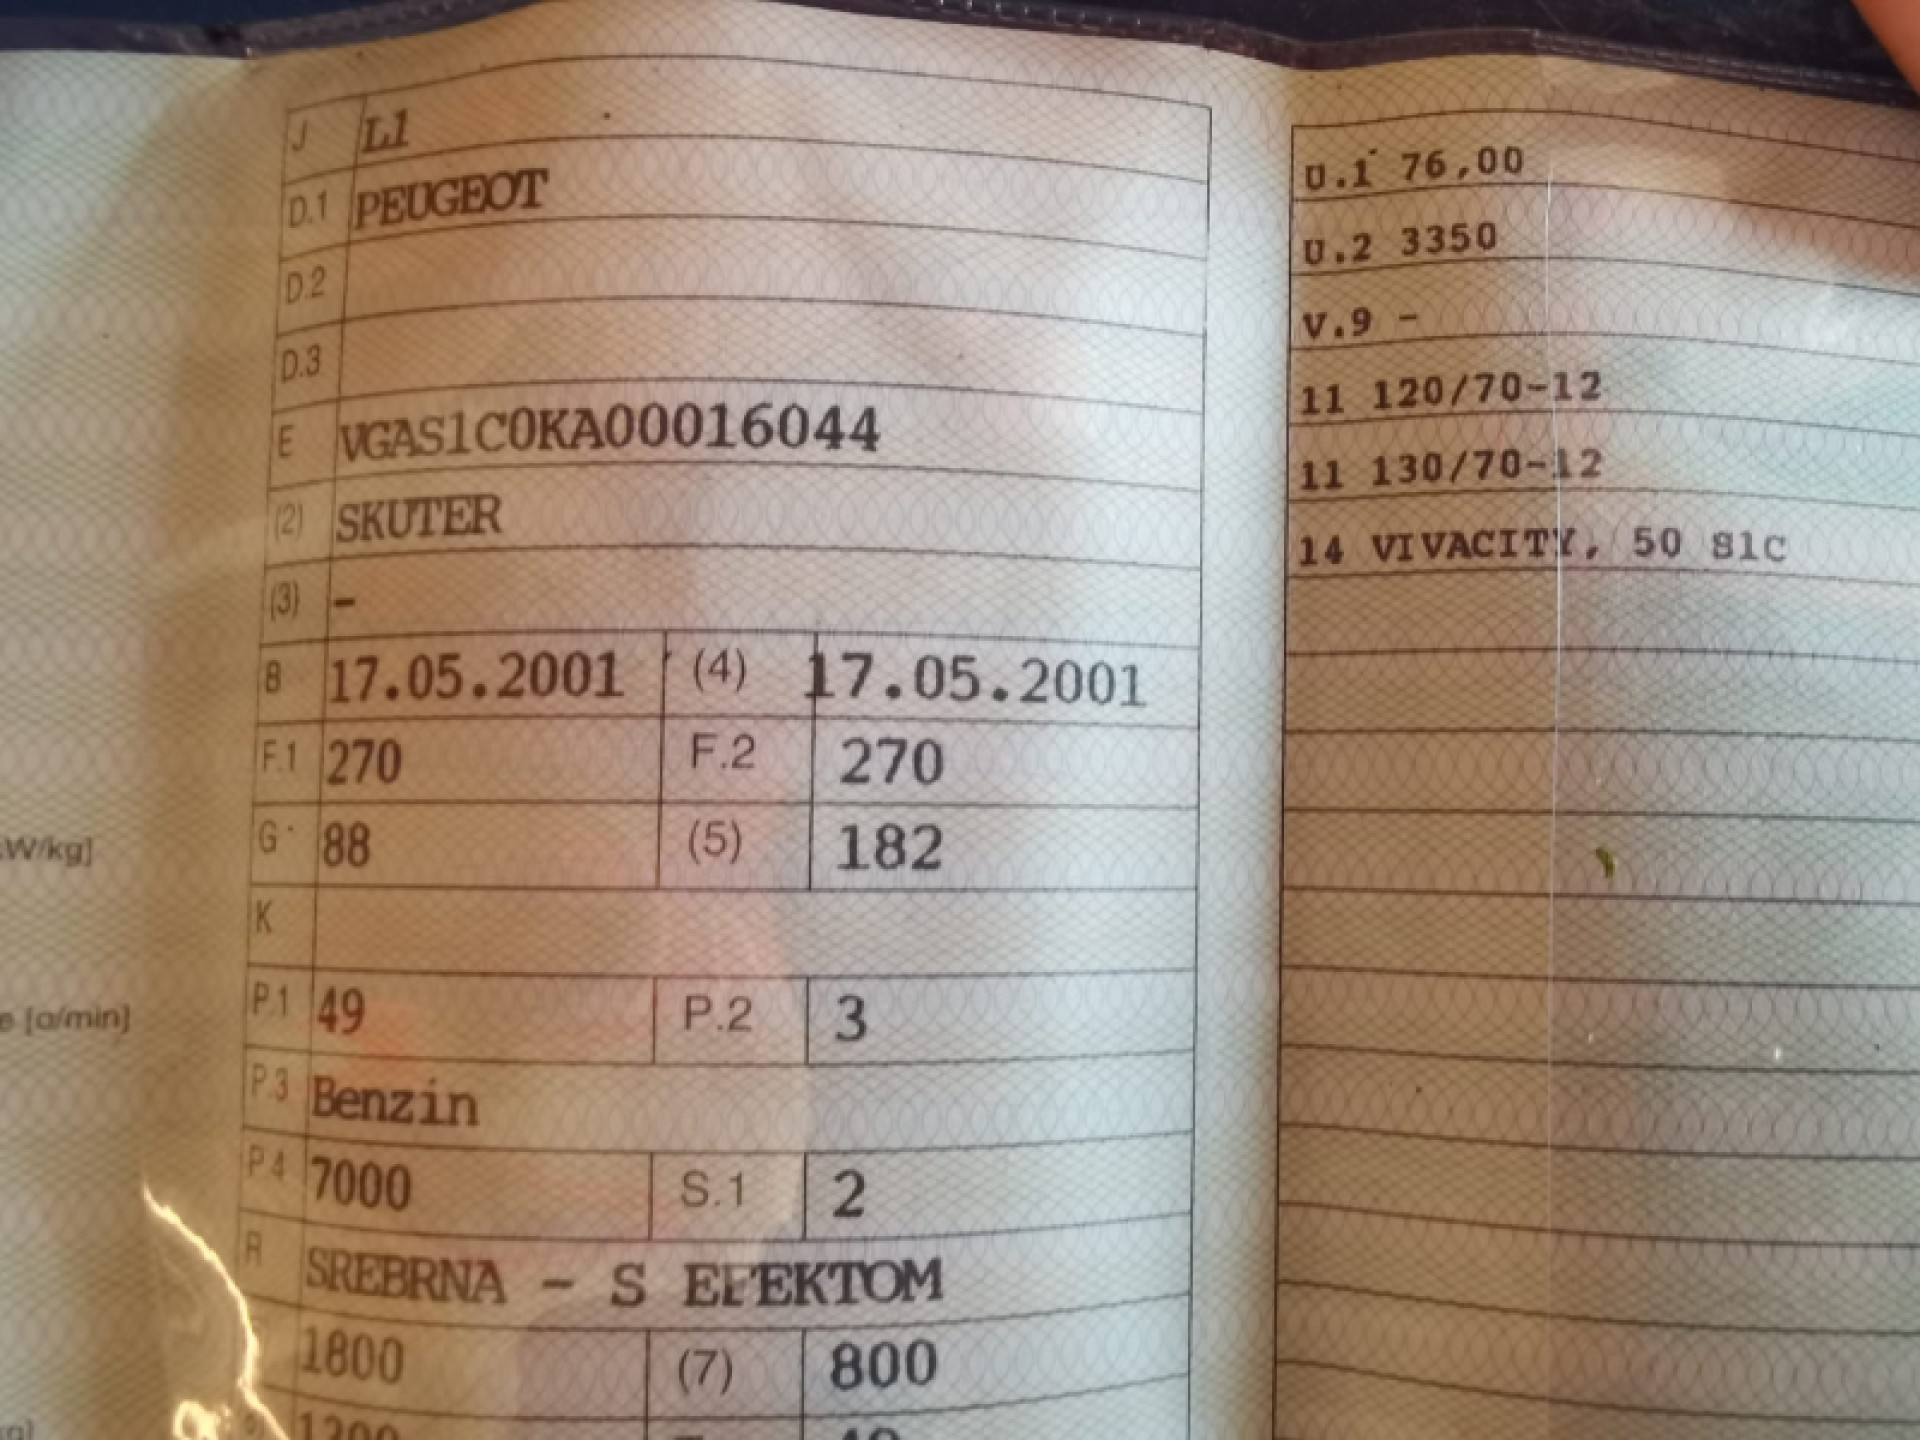 J L1
D.1 PEUGEOT
D.2
D.3
E VGAS1C0KA00016044
(2) SKUTER
(3) -
B 17.05.2001 (4) 17.05.2001
F.1 270 F.2 270
G 88 (5) 182
K
P.1 49 P.2 3
P.3 Benzin
P.4 7000 S.1 2
R SREBRNA - S EFEKTOM
1800 (7) 800
W/kg]
e [o/min]
U.1 76,00
U.2 3350
V.9 -
11 120/70-12
11 130/70-12
14 VIVACITY, 50 S1C